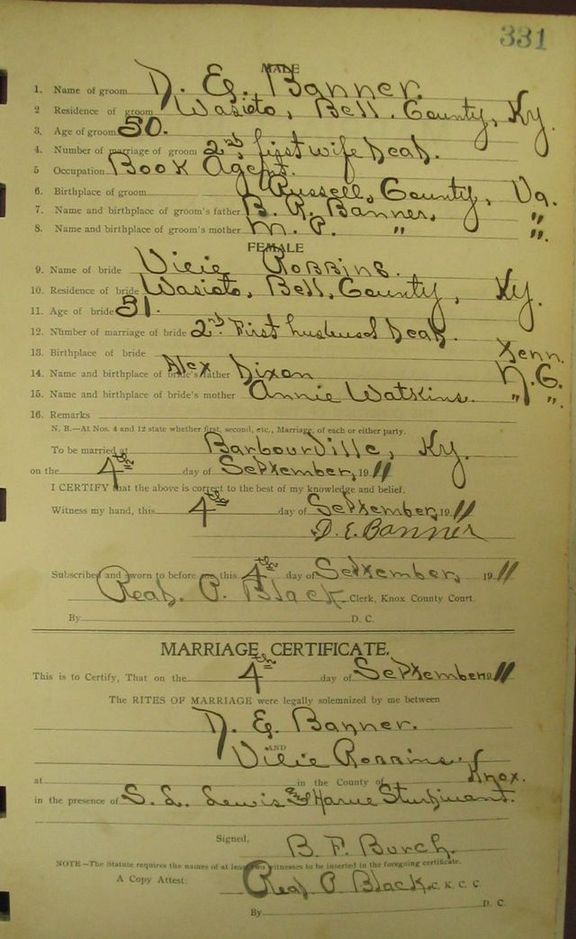 331
MALE
1. Name of groom D. E. Banner.
2 Residence of groom Wasioto, Bell. County, Ky.
3. Age of groom 50.
4. Number of marriage of groom 2nd. first wife dead.
5 Occupation Book Agent.
6. Birthplace of groom Russell, County, Va.
7. Name and birthplace of groom's father B. R. Banner, "
8. Name and birthplace of groom's mother M. P. " "
FEMALE
9. Name of bride Vicie Robbins.
10. Residence of bride Wasioto, Bell, County, Ky.
11. Age of bride 31.
12. Number of marriage of bride 2nd. First husband dead.
13. Birthplace of bride Tenn.
14. Name and birthplace of bride's father Alex Dixon N. C.
15. Name and birthplace of bride's mother Annie Watkins. " "
16. Remarks
N. B.—At Nos. 4 and 12 state whether first, second, etc., Marriage, of each or either party.
To be married at Barbourville, Ky.
on the 4th day of September, 1911
I CERTIFY that the above is correct to the best of my knowledge and belief.
Witness my hand, this 4th day of September, 1911
D. E. Banner
Subscribed and sworn to before me this 4th day of September, 1911
Read. P. Black Clerk, Knox County Court.
By D. C.
MARRIAGE CERTIFICATE.
This is to Certify, That on the 4th day of September 1911
The RITES OF MARRIAGE were legally solemnized by me between
D. E. Banner.
AND
Vicie Robbins
at in the County of Knox.
in the presence of S. L. Lewis and Harve Sturdivant.
Signed, B. F. Burch.
NOTE—The Statute requires the names of at least two witnesses to be inserted in the foregoing certificate.
A Copy Attest: Read P Black C. K. C. C.
By D. C.